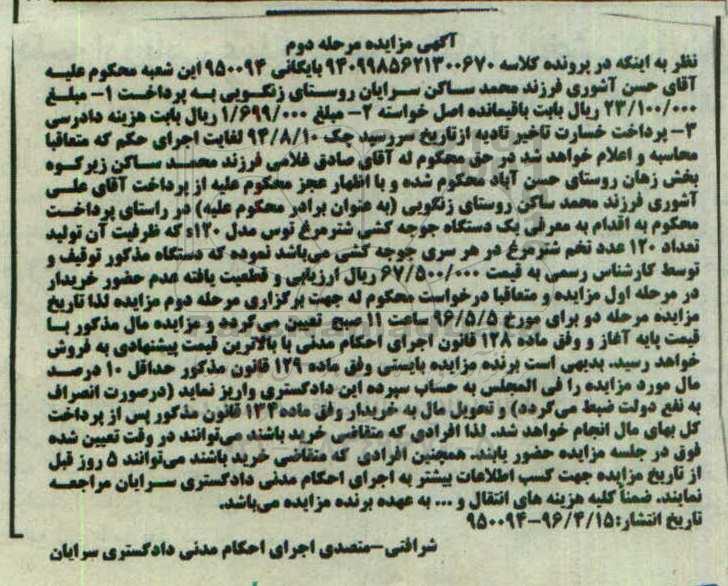 آگهی مزایده مرحله دوم
نظر به اینکه در پرونده کلاسه ۹۴۰۹۹۸۵۶۲۱۳۰۰۶۷۰ بایگانی ۹۵۰۰۹۴ این شعبه محکوم علیه
آقای حسن آشوری فرزند محمد ساکن سرایان روستای زنگویی به پرداخت ۱- مبلغ
۲۳/۱۰۰/۰۰۰ ریال بابت باقیمانده اصل خواسته ۲- مبلغ ۱/۶۹۹/۰۰۰ ریال بابت هزینه دادرسی
۳- پرداخت خسارت تاخیر تادیه ازتاریخ سررسید چک ۹۴/۸/۱۰ لغایت اجرای حکم که متعاقبا
محاسبه و اعلام خواهد شد در حق محکوم له آقای صادق غلامی فرزند محمد ساکن زیرکوه
بخش زهان روستای حسن آباد محکوم شده و با اظهار عجز محکوم علیه از پرداخت آقای علی
آشوری فرزند محمد ساکن روستای زنگویی (به عنوان برادر محکوم علیه) در راستای پرداخت
محکوم به اقدام به معرفی یک دستگاه جوجه کشی شترمرغ توس مدل ۱۲۰s که ظرفیت آن تولید
تعداد ۱۲۰ عدد تخم شترمرغ در هر سری جوجه کشی می‌باشد نموده که دستگاه مذکور توقیف و
توسط کارشناس رسمی به قیمت ۶۷/۵۰۰/۰۰۰ ریال ارزیابی و قطعیت یافته عدم حضور خریدار
در مرحله اول مزایده و متعاقبا درخواست محکوم له جهت برگزاری مرحله دوم مزایده لذا تاریخ
مزایده مرحله دو برای مورخ ۹۶/۵/۵ ساعت ۱۱ صبح تعیین می‌گردد و مزایده مال مذکور با
قیمت پایه آغاز و وفق ماده ۱۲۸ قانون اجرای احکام مدنی با بالاترین قیمت پیشنهادی به فروش
خواهد رسید. بدیهی است برنده مزایده بایستی وفق ماده ۱۲۹ قانون مذکور حداقل ۱۰ درصد
مال مورد مزایده را فی المجلس به حساب سپرده این دادگستری واریز نماید (درصورت انصراف
به نفع دولت ضبط می‌گردد) و تحویل مال به خریدار وفق ماده۱۳۴ قانون مذکور پس از پرداخت
کل بهای مال انجام خواهد شد. لذا افرادی که متقاضی خرید باشند می‌توانند در وقت تعیین شده
فوق در جلسه مزایده حضور یابند. همچنین افرادی که متقاضی خرید باشند می‌توانند ۵ روز قبل
از تاریخ مزایده جهت کسب اطلاعات بیشتر به اجرای احکام مدنی دادگستری سرایان مراجعه
نمایند. ضمناً کلیه هزینه های انتقال و ... به عهده برنده مزایده می‌باشد.
تاریخ انتشار:۹۶/۴/۱۵-۹۵۰۰۹۴
شرافتی-متصدی اجرای احکام مدنی دادگستری سرایان